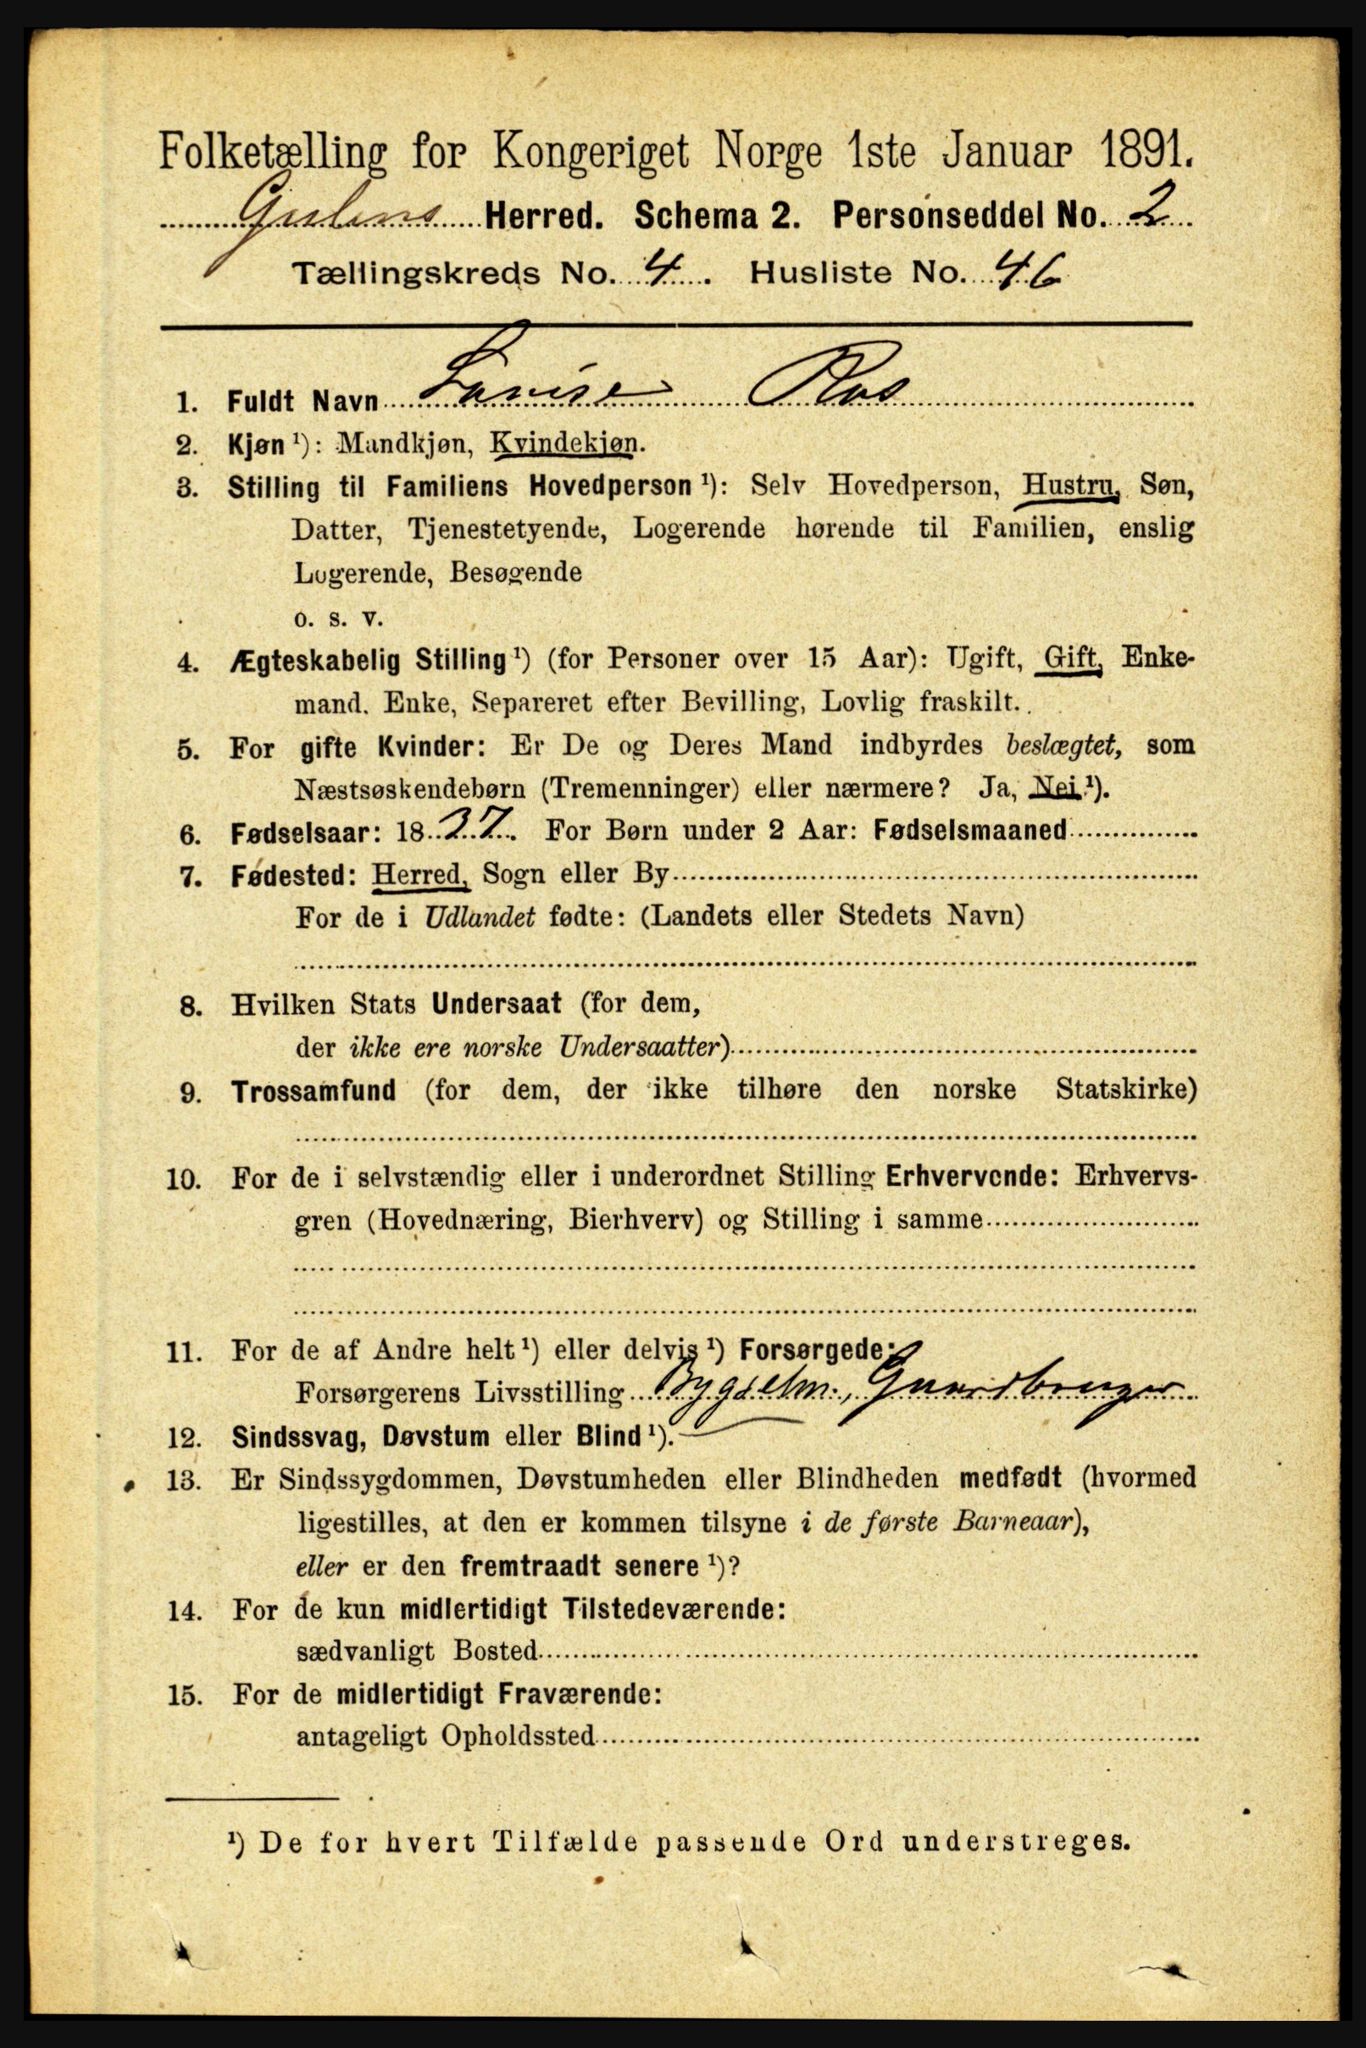 Folketælling for Kongeriget Norge 1ste Januar 1891.
Gulens Herred. Schema 2. Personseddel No. 2
Tællingskreds No. 4. Husliste No. 46
1. Fuldt Navn Lovise Ros
2. Kjøn ¹): Mandkjøn, Kvindekjøn.
3. Stilling til Familiens Hovedperson ¹): Selv Hovedperson, Hustru, Søn,
Datter, Tjenestetyende, Logerende hørende til Familien, enslig
Logerende, Besøgende
o. s. v.
4. Ægteskabelig Stilling ¹) (for Personer over 15 Aar): Ugift, Gift, Enke-
mand. Enke, Separeret efter Bevilling, Lovlig fraskilt.
5. For gifte Kvinder: Er De og Deres Mand indbyrdes beslægtet, som
Næstsøskendebørn (Tremenninger) eller nærmere? Ja, Nei ¹).
6. Fødselsaar: 1837. For Børn under 2 Aar: Fødselsmaaned
7. Fødested: Herred, Sogn eller By
For de i Udlandet fødte: (Landets eller Stedets Navn)
8. Hvilken Stats Undersaat (for dem,
der ikke ere norske Undersaatter)
9. Trossamfund (for dem, der ikke tilhøre den norske Statskirke)
10. For de i selvstændig eller i underordnet Stilling Erhvervende: Erhvervs-
gren (Hovednæring, Bierhverv) og Stilling i samme
11. For de af Andre helt ¹) eller delvis ¹) Forsørgede:
Forsørgerens Livsstilling Bygselm., Gaardbruger
12. Sindssvag, Døvstum eller Blind ¹).
13. Er Sindssygdommen, Døvstumheden eller Blindheden medfødt (hvormed
ligestilles, at den er kommen tilsyne i de første Barneaar),
eller er den fremtraadt senere ¹)?
14. For de kun midlertidigt Tilstedeværende:
sædvanligt Bosted
15. For de midlertidigt Fraværende:
antageligt Opholdssted
¹) De for hvert Tilfælde passende Ord understreges.